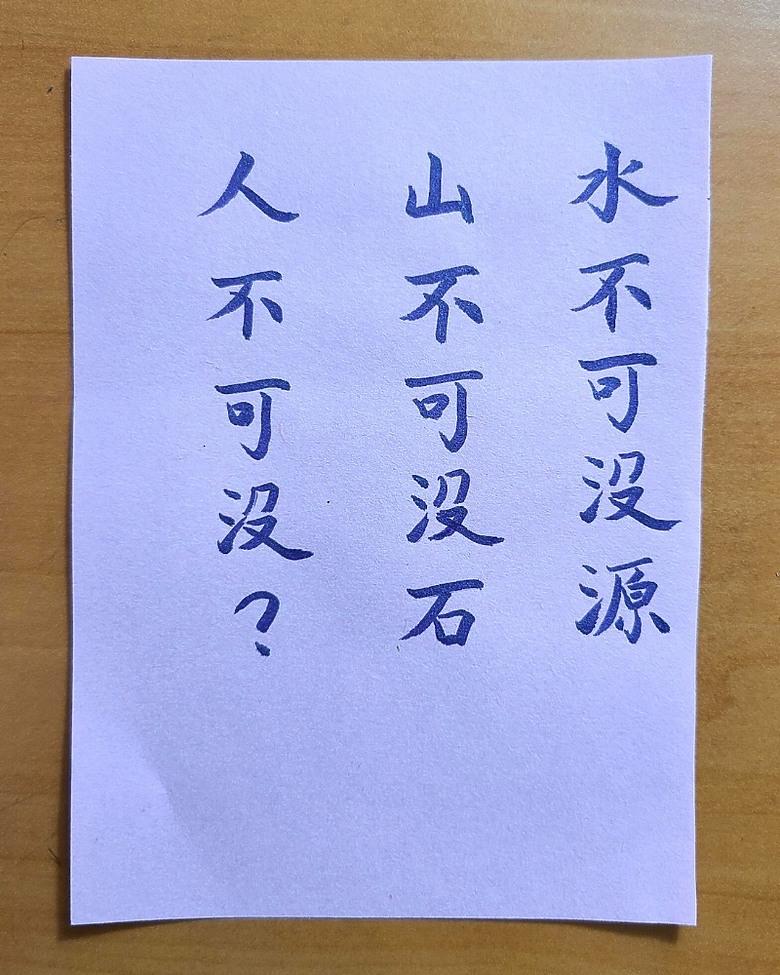 水不可没源
山不可没石
人不可没?